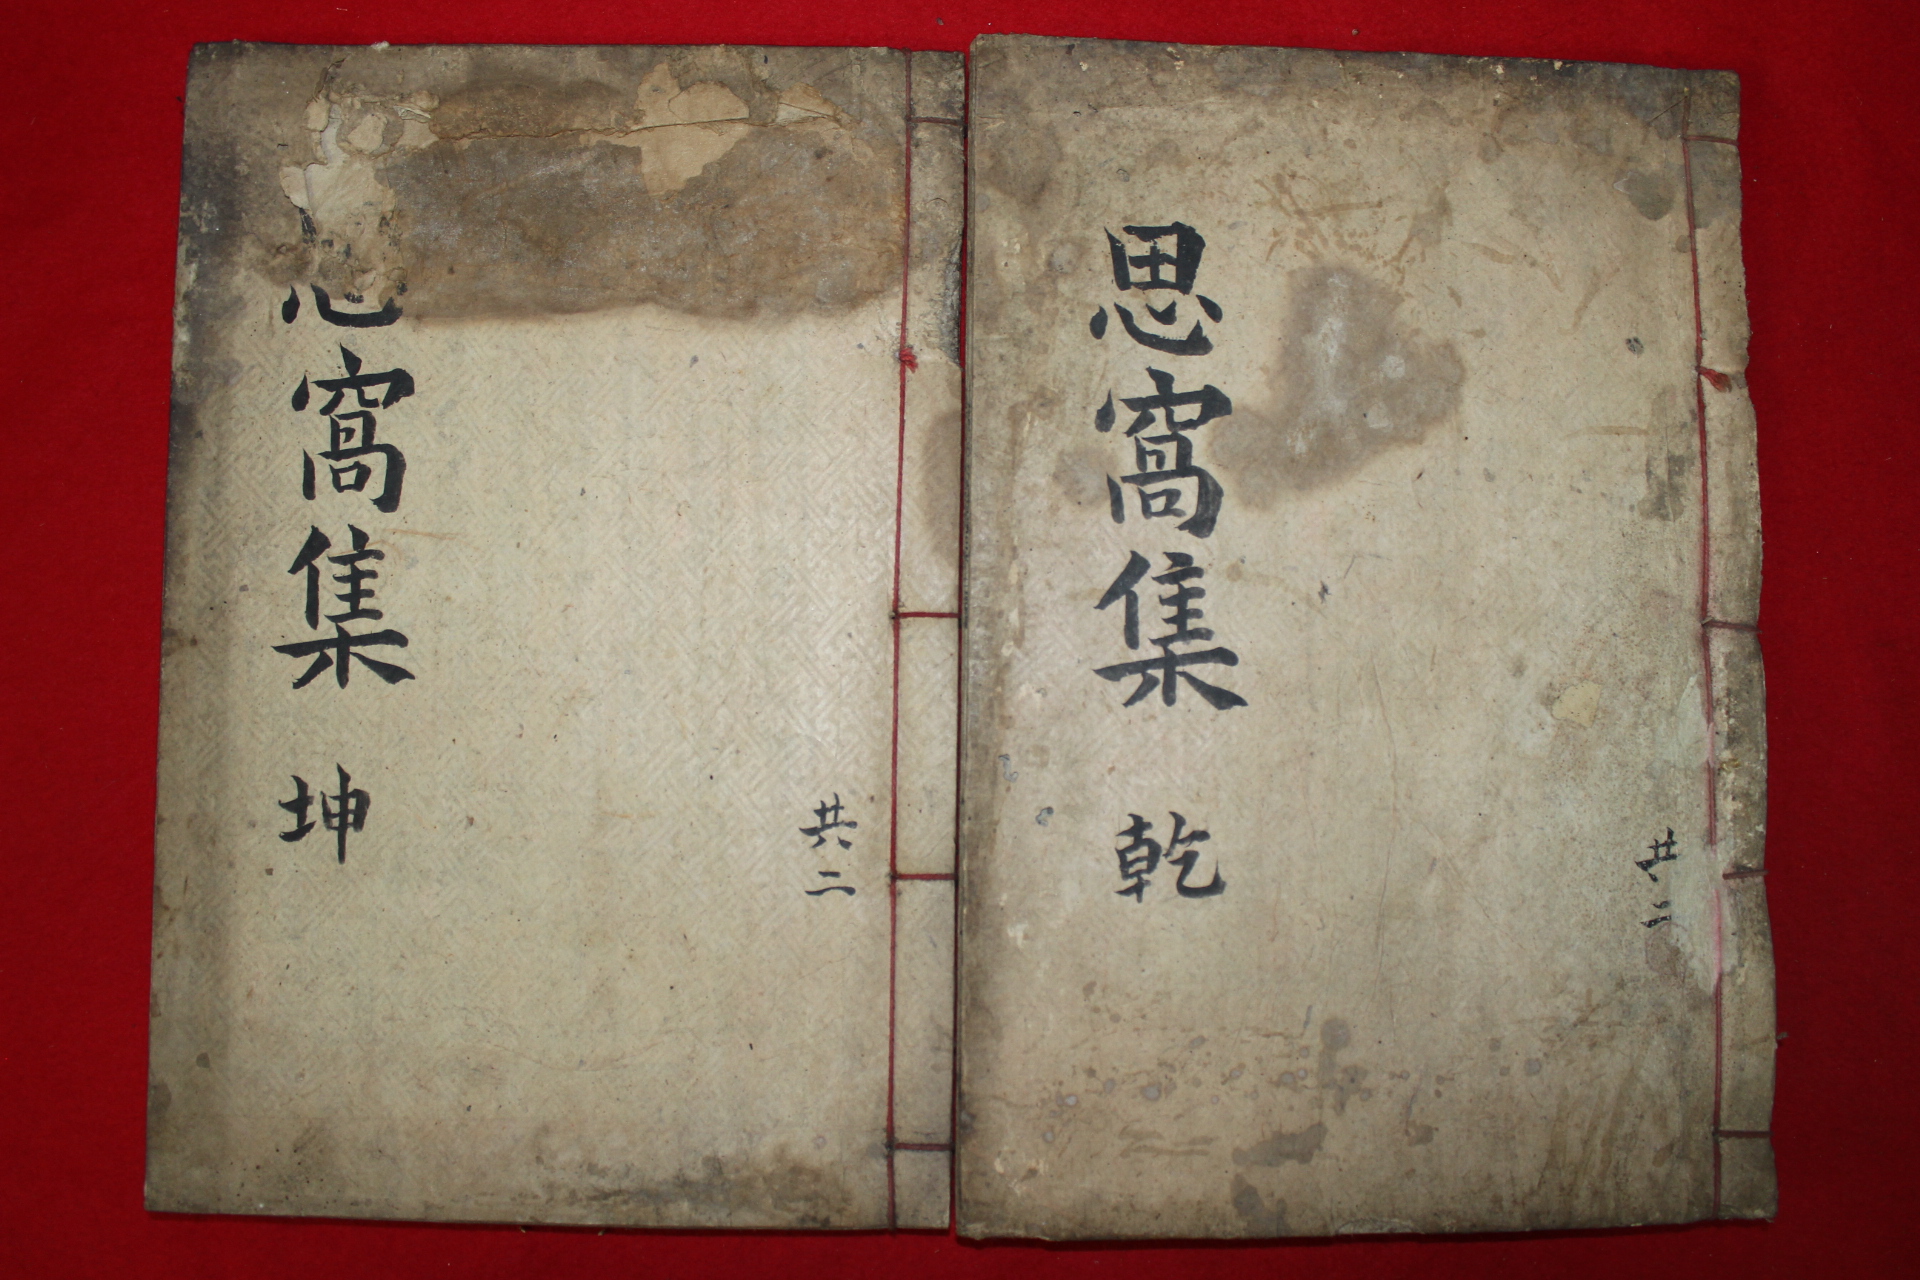 思窩集 乾
共二
窩集 坤
共二